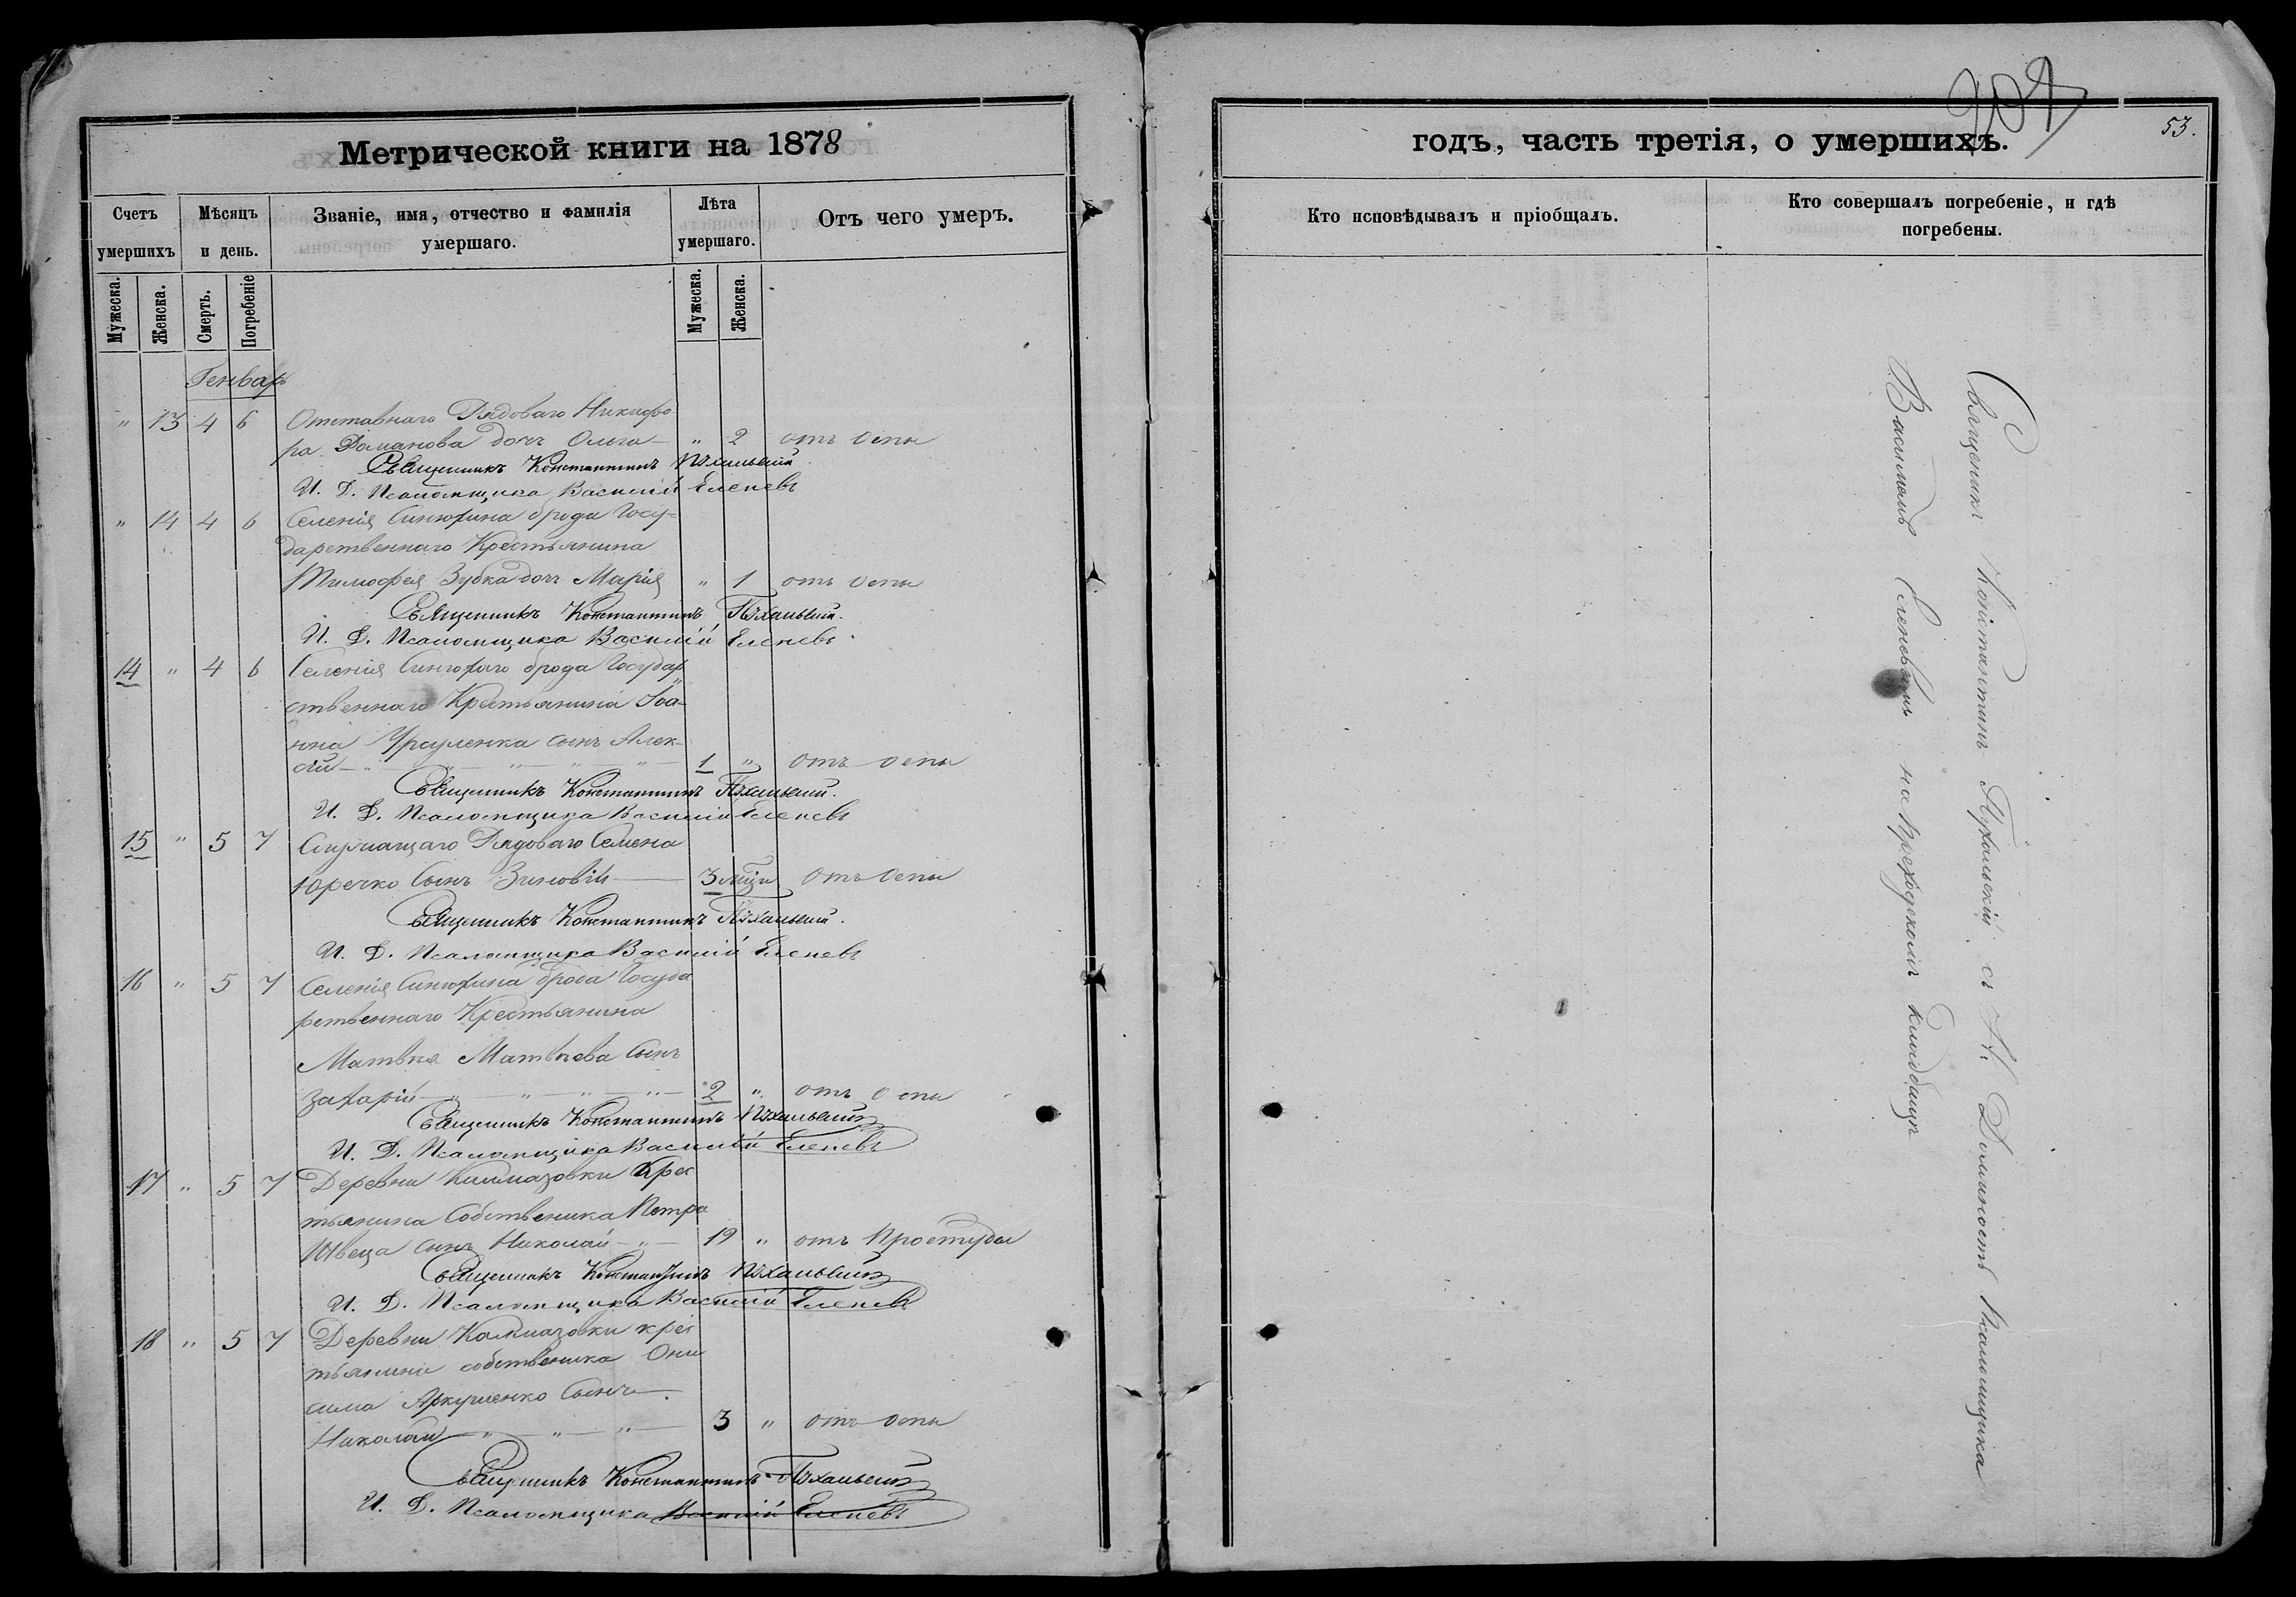 Метрической книги на 1878
Счетъ умершихъ
Мѣсяцъ и день.
Званіе, имя, отчество и фамилія умершаго.
Лѣта умершаго.
Отъ чего умеръ.
Мужеска.
Женска.
Смерть.
Погребеніе
Мужеска.
Женска.
Генварь
" 13 4 6 Отставнаго Рядоваго Никифо-
ра Романова дочь Ольга — " 2 отъ оспы
Священникъ Константинъ Пѣхальскій
И. Д. Псаломщика Василій Еленевъ
" 14 4 6 Селенія Синюхина брода Госу=
дарственнаго Крестьянина
Тимофея Зубка дочь Марія " 1 отъ оспы
Священникъ Константинъ Пѣхальскій.
И. Д. Псаломщика Василій Еленевъ
14 " 4 6 Селенія Синюхиго брода Государ
ственнаго Крестьянина Іоа-
нна сынъ Алек-
сій — " — " — " — " — 1 " отъ оспы
Священникъ Константинъ Пѣхальскій.
И. Д. Псаломщика Василій Еленевъ
15 " 5 7 Рядоваго Семена
Юречко сынъ Зиновій — 3 мѣця отъ оспы
Священникъ Константинъ Пѣхальскій.
И. Д. Псаломщика Василій Еленевъ
16 " 5 7 Селенія Синюхина брода Госуда
рственнаго Крестьянина
Матвѣя Матвѣева сынъ
Захарій — " — " — " — " — 2 " отъ оспы
Священникъ Константинъ Пѣхальскій
И. Д. Псаломщика Василій Еленевъ
17 " 5 7 Деревни Крес
тьянина Собственика Петра
Швеца сынъ Николай — " — 19 " отъ простуды
Священникъ Константинъ Пѣхальскій
И. Д. Псаломщика Василій Еленевъ
18 " 5 7 Деревни крес
тьянина собственика Они
сима сынъ —.
Николай — " — " — " — 3 " отъ оспы
Священникъ Константинъ Пѣхальскій
И. Д. Псаломщика Василій Еленевъ
53.
годъ, часть третія, о умершихъ.
Кто исповѣдывалъ и пріобщалъ.
Кто совершалъ погребеніе, и гдѣ погребены.
Священникъ Константинъ Пѣхальскій съ И. Должность Псаломщика
Василіемъ Еленевымъ на приходскомъ кладбищѣ